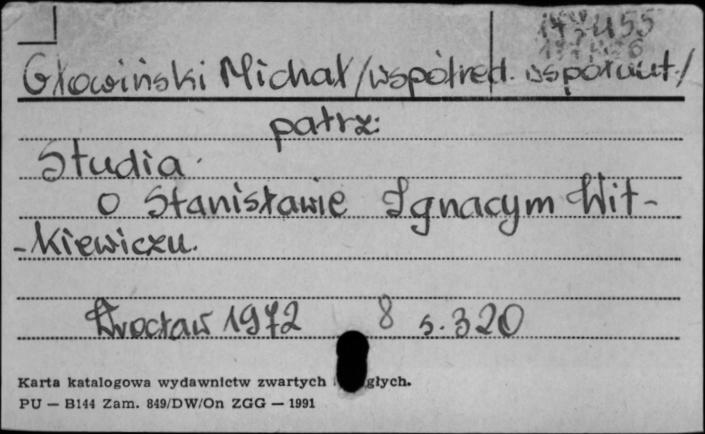 Głowiński Michał /współred. współaut./
patrz:
Studia
o Stanisławie Ignacym Wit-
-kiewiczu.
Wrocław 1972 8 s. 320
Karta katalogowa wydawnictw zwartych głych.
PU — B144 Zam. 849/DW/On ZGG — 1991